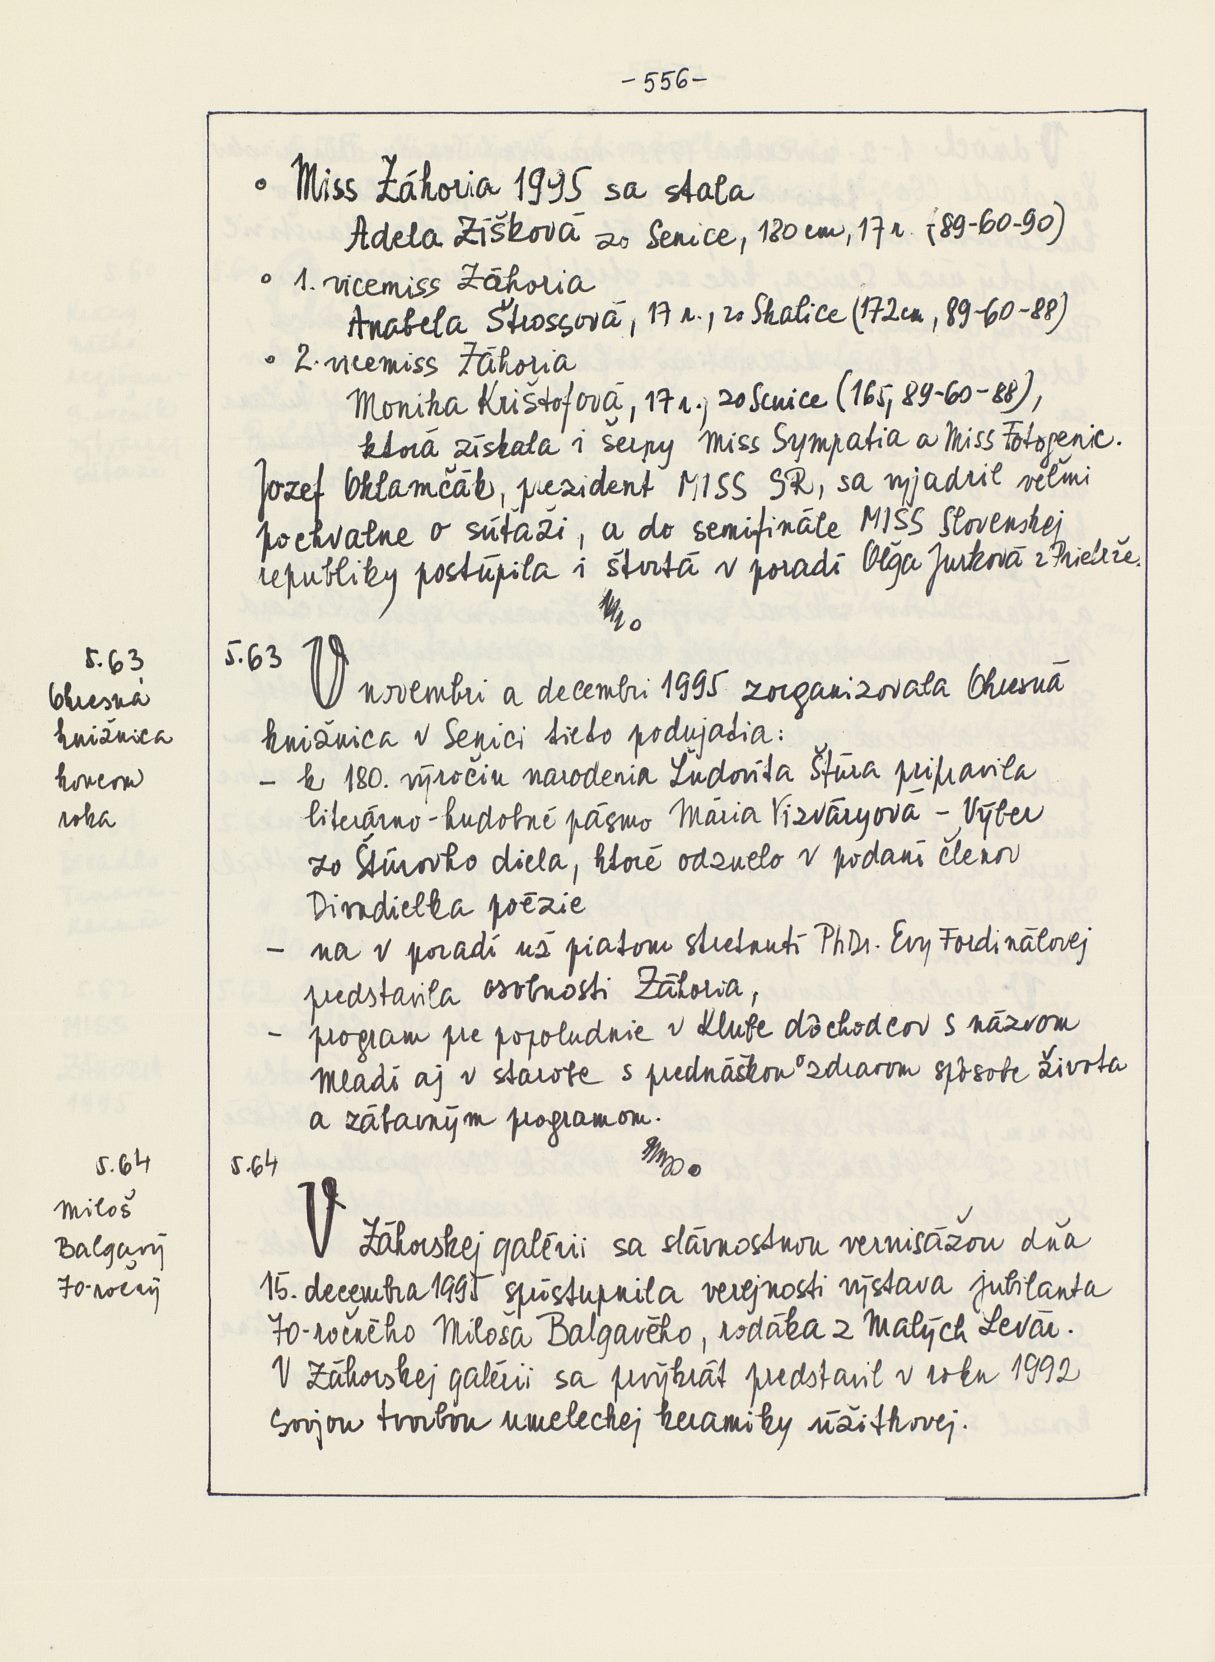 -556-
• Miss Záhoria 1995 sa stala
Adela Zíšková zo Senice, 180 cm, 17 r. (89-60-90)
• 1. vicemiss Záhoria
Anabela Štrossová, 17 r., zo Skalice (172cm, 89-60-88)
• 2. vicemiss Záhoria
Monika Krištofová, 17 r., zo Senice (165, 89-60-88),
ktorá získala i šerpy Miss Sympatia a Miss Fotogenic.
Jozef Oklamčák, prezident MISS SR, sa vyjadril veľmi
pochvalne o súťaži, a do semifinále MISS Slovenskej
republiky postúpila i štvrtá v poradí Oľga Jurková z Prietrže.
5.63
Okresná
knižnica
koncom
roka
5.63 V novembri a decembri 1995 zorganizovala Okresná
knižnica v Senici tieto podujatia:
- k 180. výročiu narodenia Ľudovíta Štúra pripravila
literárno-hudobné pásmo Mária Vizváryová - Výber
zo Štúrovho diela, ktoré odznelo v podaní členov
Divadielka poézie
- na v poradí už piatom stretnutí PhDr. Evy Fordinálovej
predstavila osobnosti Záhoria,
- program pre popoludnie v Klube dôchodcov s názvom
Mladí aj v starobe s prednáškou o zdravom spôsobe života
a zábavným programom.
5.64
Miloš
Balgavý
70-ročný
5.64
V Záhorskej galérii sa slávnostnou vernisážou dňa
15. decembra 1995 sprístupnila verejnosti výstava jubilanta
70-ročného Miloša Balgavého, rodáka z Malých Levár.
V Záhorskej galérii sa prvýkrát predstavil v roku 1992
svojou tvorbou umeleckej keramiky úžitkovej.